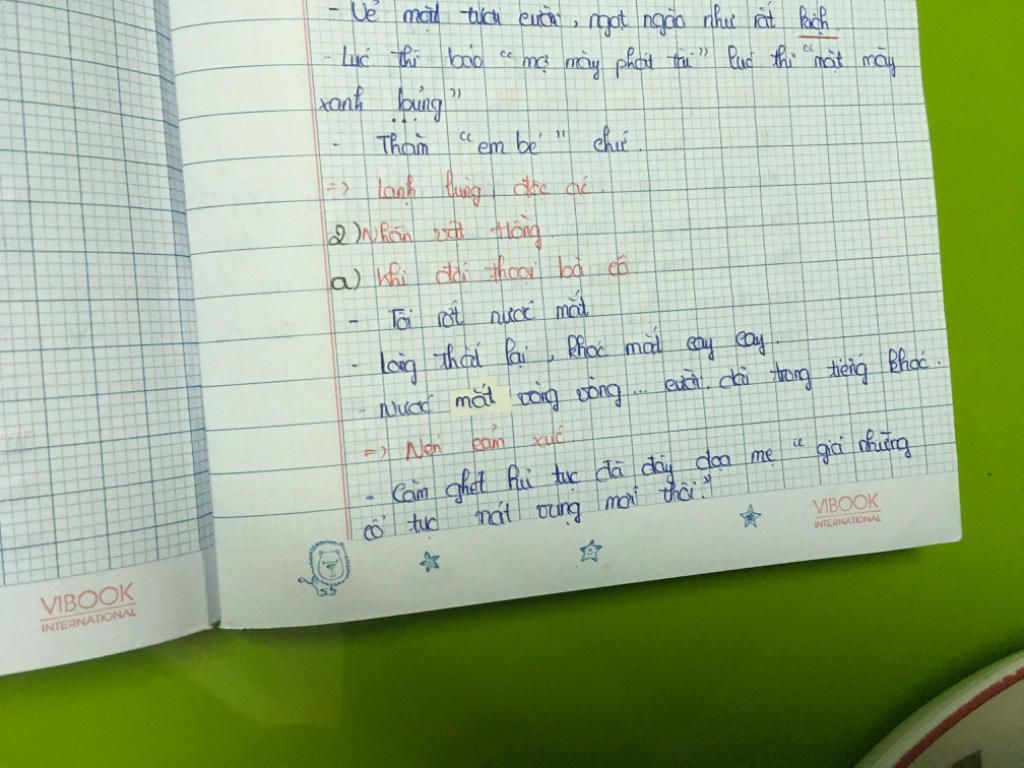 - Vẻ mặt tươi cười, ngọt ngào như rất kịch
- Lúc thì bảo "mợ mày phát tài" lúc thì "mặt mày
xanh bủng"
- Thăm "em bé" chứ.
=> Lạnh lùng, độc ác.
2) Nhân vật Hồng
a) Khi đối thoại bà cô
- Tôi rớt nước mắt
- Lòng thắt lại, khóe mắt cay cay.
- Nước mắt ròng ròng... cười dài trong tiếng khóc.
=> Nén cảm xúc.
- Căm ghét hủ tục đã đày đọa mẹ "giá những
cổ tục nát vụng mới thôi."
VIBOOK
INTERNATIONAL
VIBOOK
INTERNATIONAL